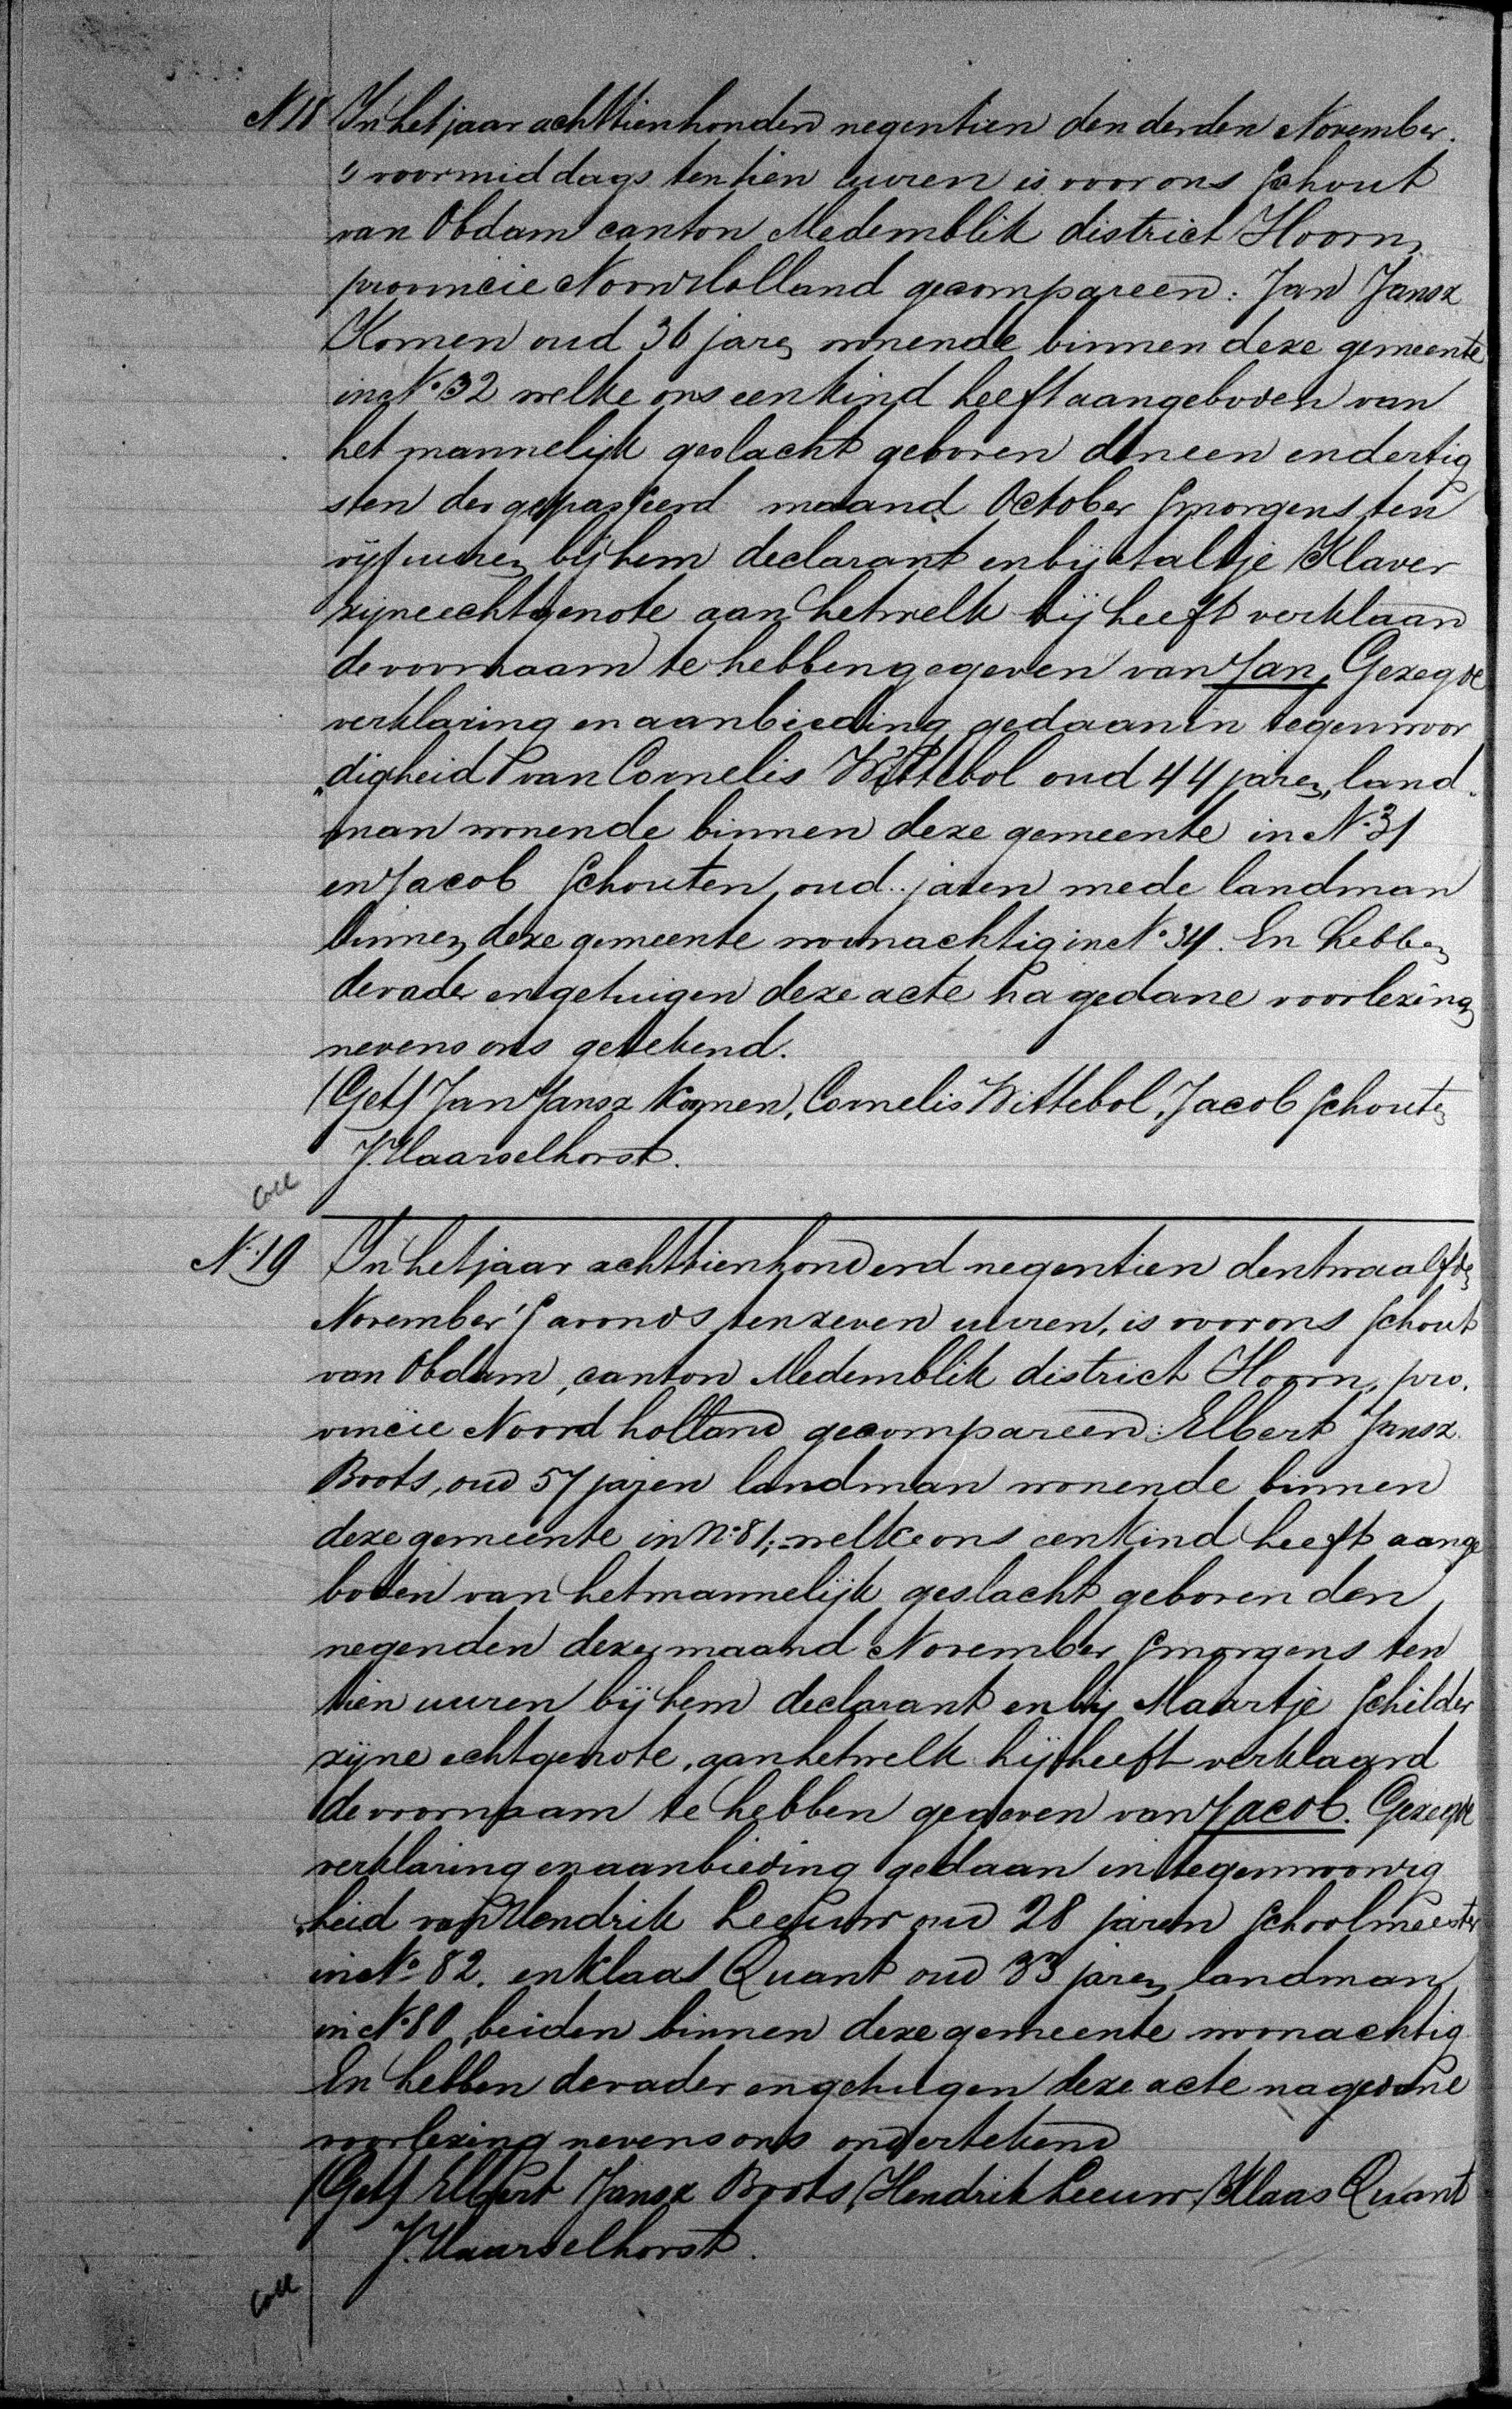 N 18 In het jaar achttienhonderd negentien den derden November.
's voormiddags ten tien uuren is voor ons schout
van Obdam canton Medemblik district Hoorn,
provincie Noordholland gecompareerd: Jan Jansz
Komen oud 36 jaren wonende binnen deze gemeente
in No 32 welke ons een kind heeft aangeboden van
het mannelijk geslacht geboren den een en dertig
sten der gepasseerd maand October smorgens ten
vijf uuren bij hem declarant en bij Aaltje Klaver
zijne echtgenote aan hetwelk hij heeft verklaard
de voornaam te hebben gegeven van Jan, Gezegde
verklaring en aanbieding gedaan in tegenwoor
„digheid van Cornelis Wittebol oud 44 jaren, land.
man wonende binnen deze gemeente in No 31
en Jacob Schouten, oud .. jaren mede landman
binnen deze gemeente woonachtig in No 34. En hebben
de vader en getuigen deze acte na gedane voorlezing
nevens ons getekend.
(Get) Jan Jansz Komen, Cornelis Wittebol, Jacob Schouten
J. Haarselhorst.
Coll
No. 19 In het jaar achttienhonderd negentien den twaalfden
November 's avonds ten zeven uuren, is voor ons schout
van Obdam, canton Medemblik district Hoorn, pro.
vincie Noord holland gecompareerd: Elbert Jansz
Boots, oud 57 jaren landman wonende binnen
deze gemeente in No: 81; welke ons een kind heeft aange
boden van het mannelijk geslacht geboren den
negenden dezer maand November smorgens ten
tien uuren bij hem declarant en bij Maartje Schilder
zijne echtgenote, aan hetwelk hij heeft verklaard
de voornaam te hebben gegeven van Jacob. Gezegde
verklaring en aanbieding gedaan in tegenwoordig
„heid van Hendrik Leeuw oud 28 jaren schoolmeester
in No 82. en Klaas Quant oud 33 jaren landman
in No 80, beiden binnen deze gemeente woonachtig
En hebben de vader en getuigen deze acte na gedane
voorlezing nevens ons ondertekend
(Get) Elbert Jansz Boots, Hendrik Leeuw, Klaas Quant
J. Haarselhorst.
Coll